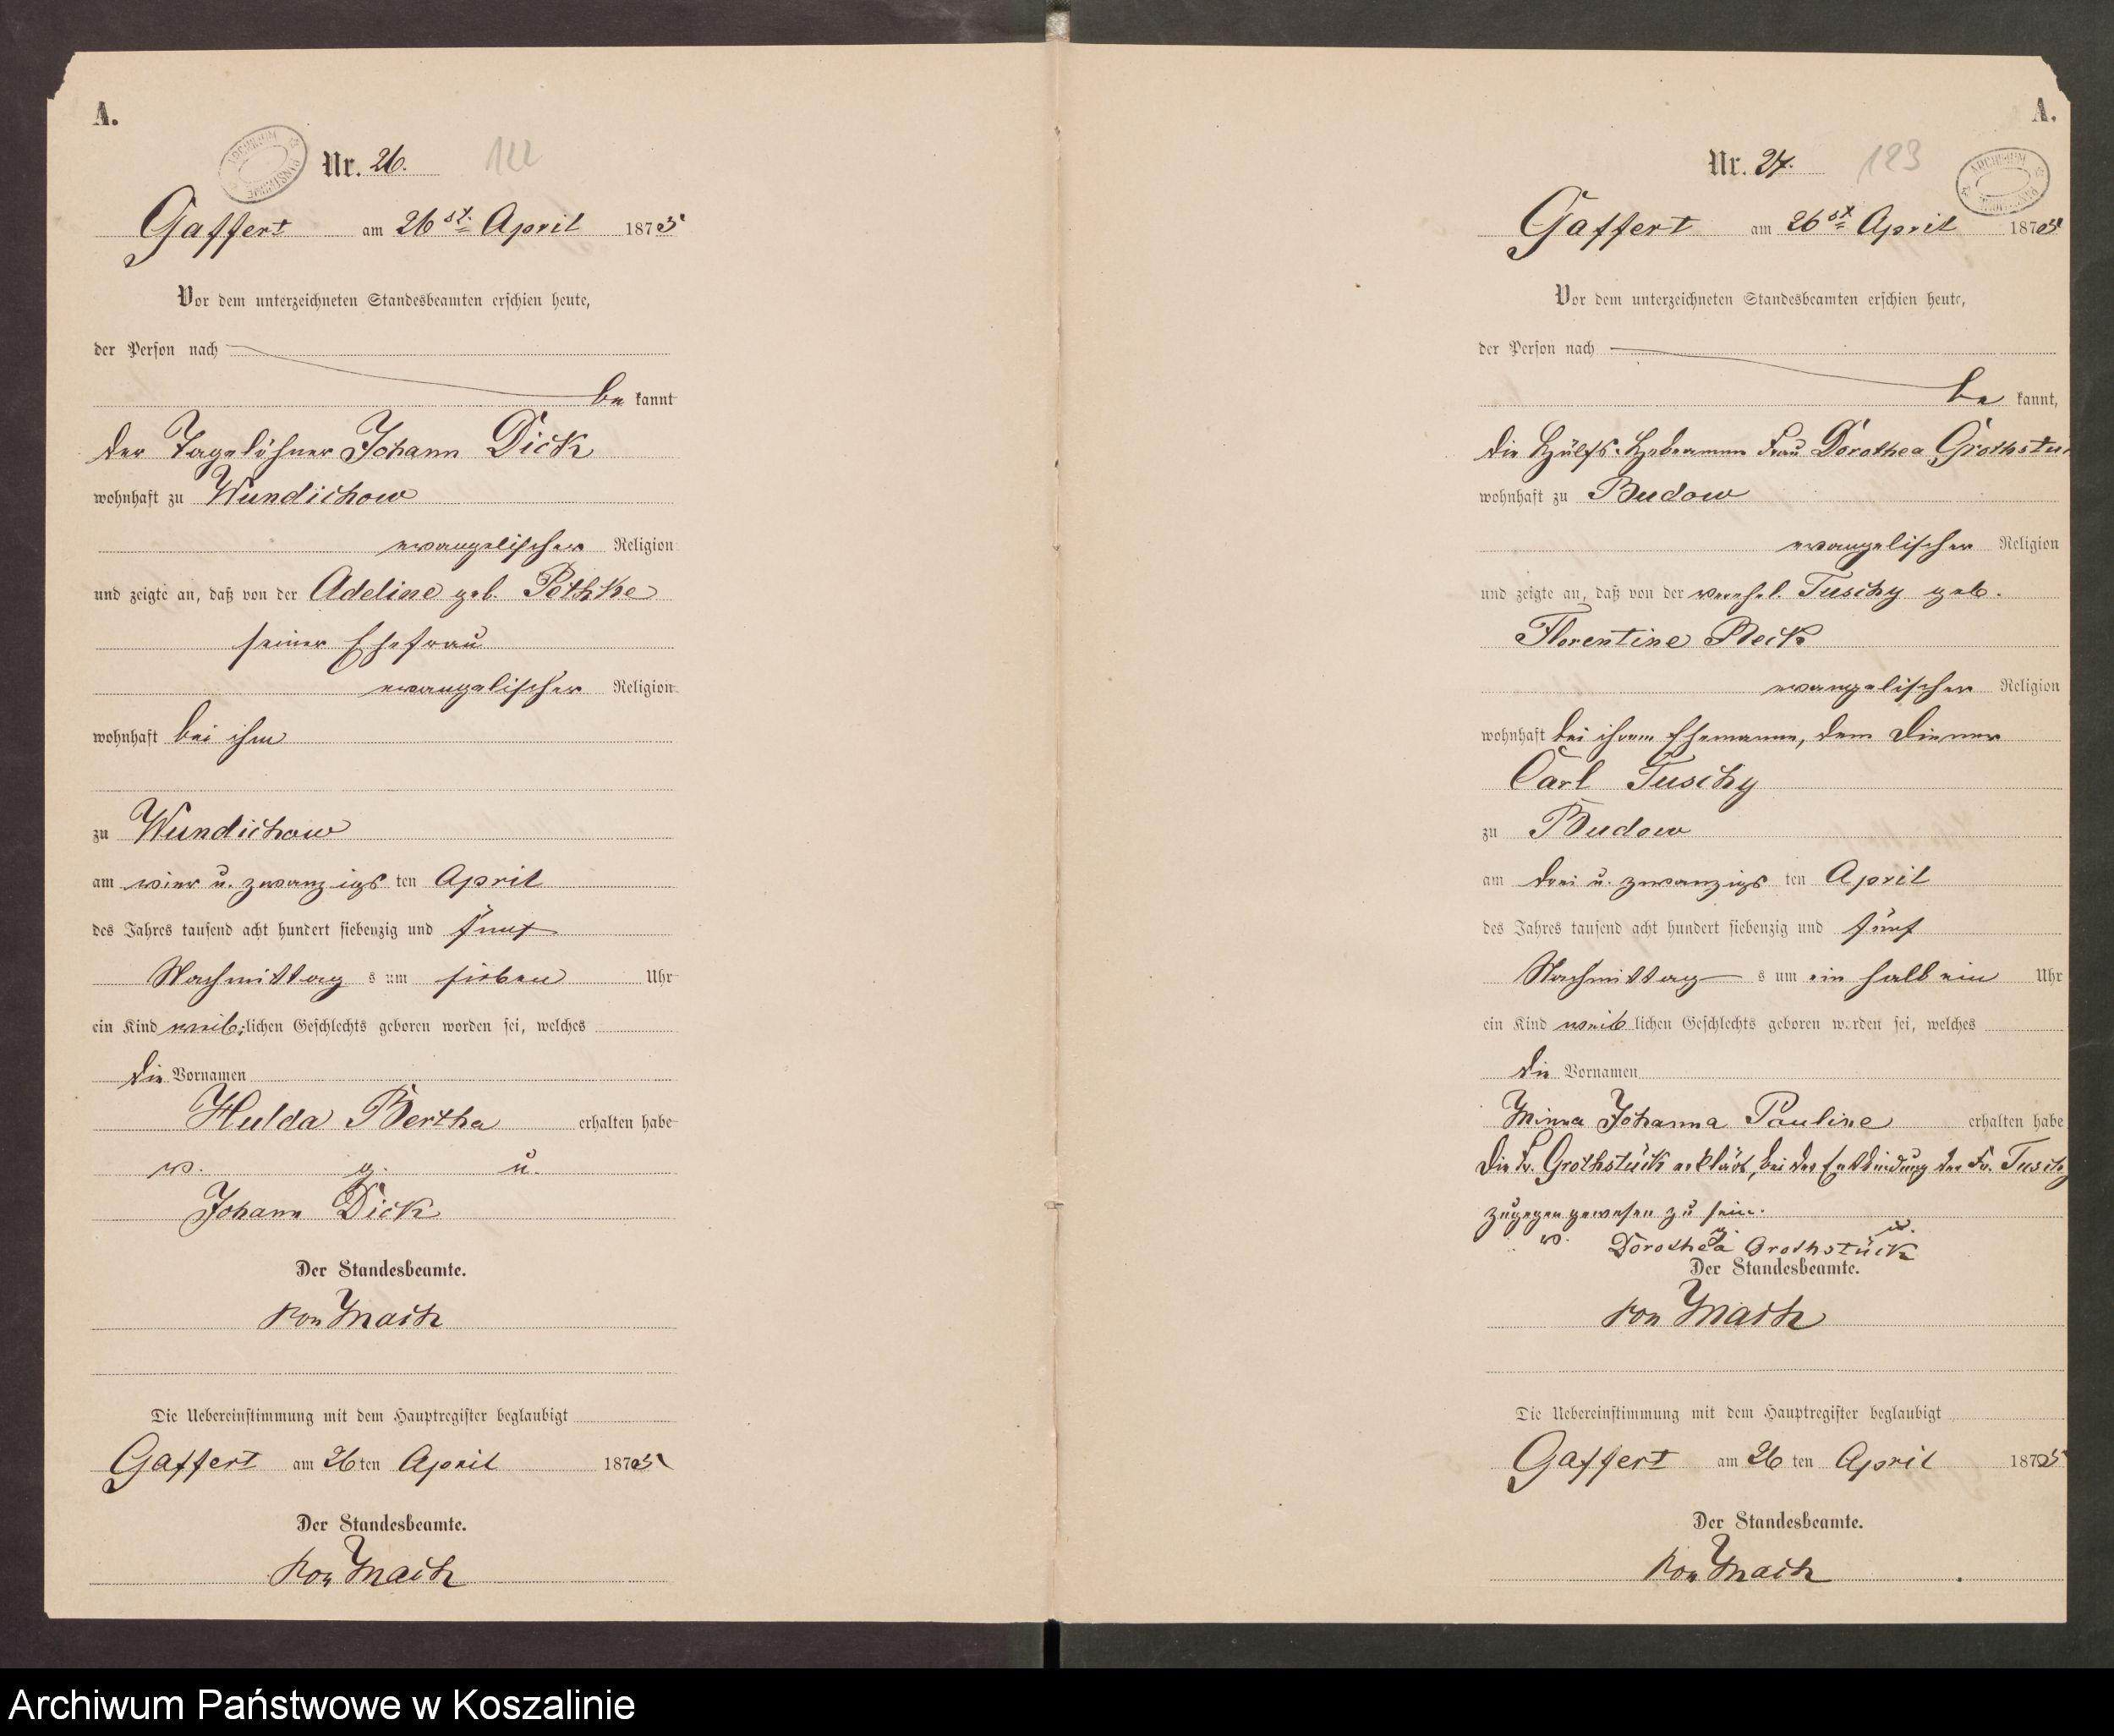 A.
Nr. 26.
122
Gaffert am 26st. April 1875
Vor dem unterzeichneten Standesbeamten erschien heute,
der Person nach
be kannt
der Tagelöhner Johann Dick
wohnhaft zu Wundichow
evangelischer Religion
und zeigte an, daß von der Adeline geb. Pethke
seiner Ehefrau
evangelischer Religion
wohnhaft bei ihm
zu Wundichow
am vier u. zwanzigs ten April
des Jahres tausend acht hundert siebenzig und fünf
Nachmittag s um sieben Uhr
ein Kind weib lichen Geschlechts geboren worden sei, welches
die Vornamen
Hulda Bertha erhalten habe
v. g. u.
Johann Dick
Der Standesbeamte.
von Mach
Die Uebereinstimmung mit dem Hauptregister beglaubigt
Gaffert am 26 ten April 1875
Der Standesbeamte.
von Mach
A.
Nr. 27.
123
Gaffert am 26st. April 1875
Vor dem unterzeichneten Standesbeamten erschien heute,
der Person nach
be kannt,
die Hülfs-Hebamme Frau Dorothea
wohnhaft zu Budow
evangelischer Religion
und zeigte an, daß von der verehel. Tuschy geb.
Florentine Beck
evangelischer Religion
wohnhaft bei ihrem Ehemanne, dem Diener
Carl Tuschy
zu Budow
am drei u. zwanzigs ten April
des Jahres tausend acht hundert siebenzig und fünf
Nachmittag s um ein halb ein Uhr
ein Kind weib lichen Geschlechts geboren worden sei, welches
die Vornamen
Minna Johanna Pauline erhalten habe
Die Fr. Grothstück erklärt, bei der Entbindung der Fr. Tuschy
zugegen gewesen zu sein.
v. g. u.
Dorothea Grothstück
Der Standesbeamte.
von Mach
Die Uebereinstimmung mit dem Hauptregister beglaubigt
Gaffert am 26 ten April 1875
Der Standesbeamte.
von Mach
Archiwum Państwowe w Koszalinie